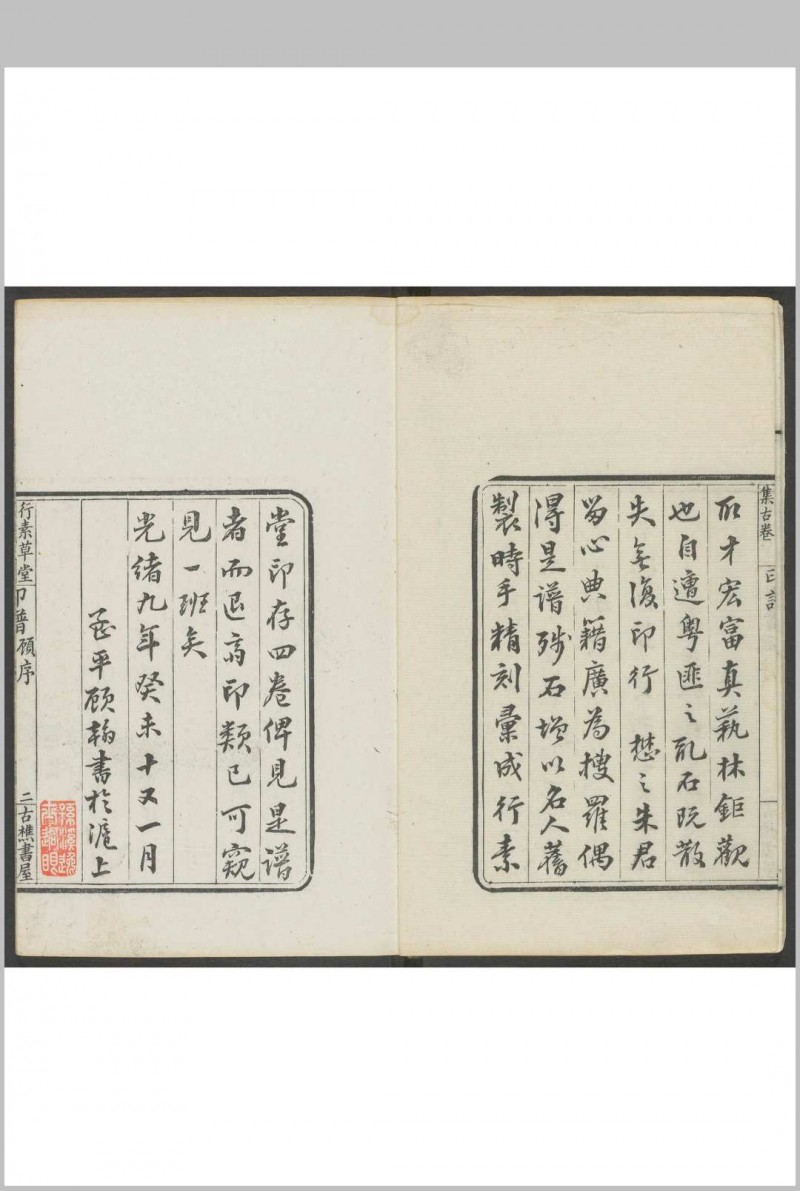 集古卷
印譜
取才宏富真萟林鉅觀
也自遭粵匪之亂石既散
失無復印行 懋之朱君
留心典籍廣為搜羅偶
得是譜殘石增以名人舊
製時手精刻彙成行素
堂印存四卷俾見是譜
者而退齋印類已可窺
見一班矣
光緒九年癸未十又一月
平顧翰書於滬上
行素草堂印譜顧序
二古樵書屋